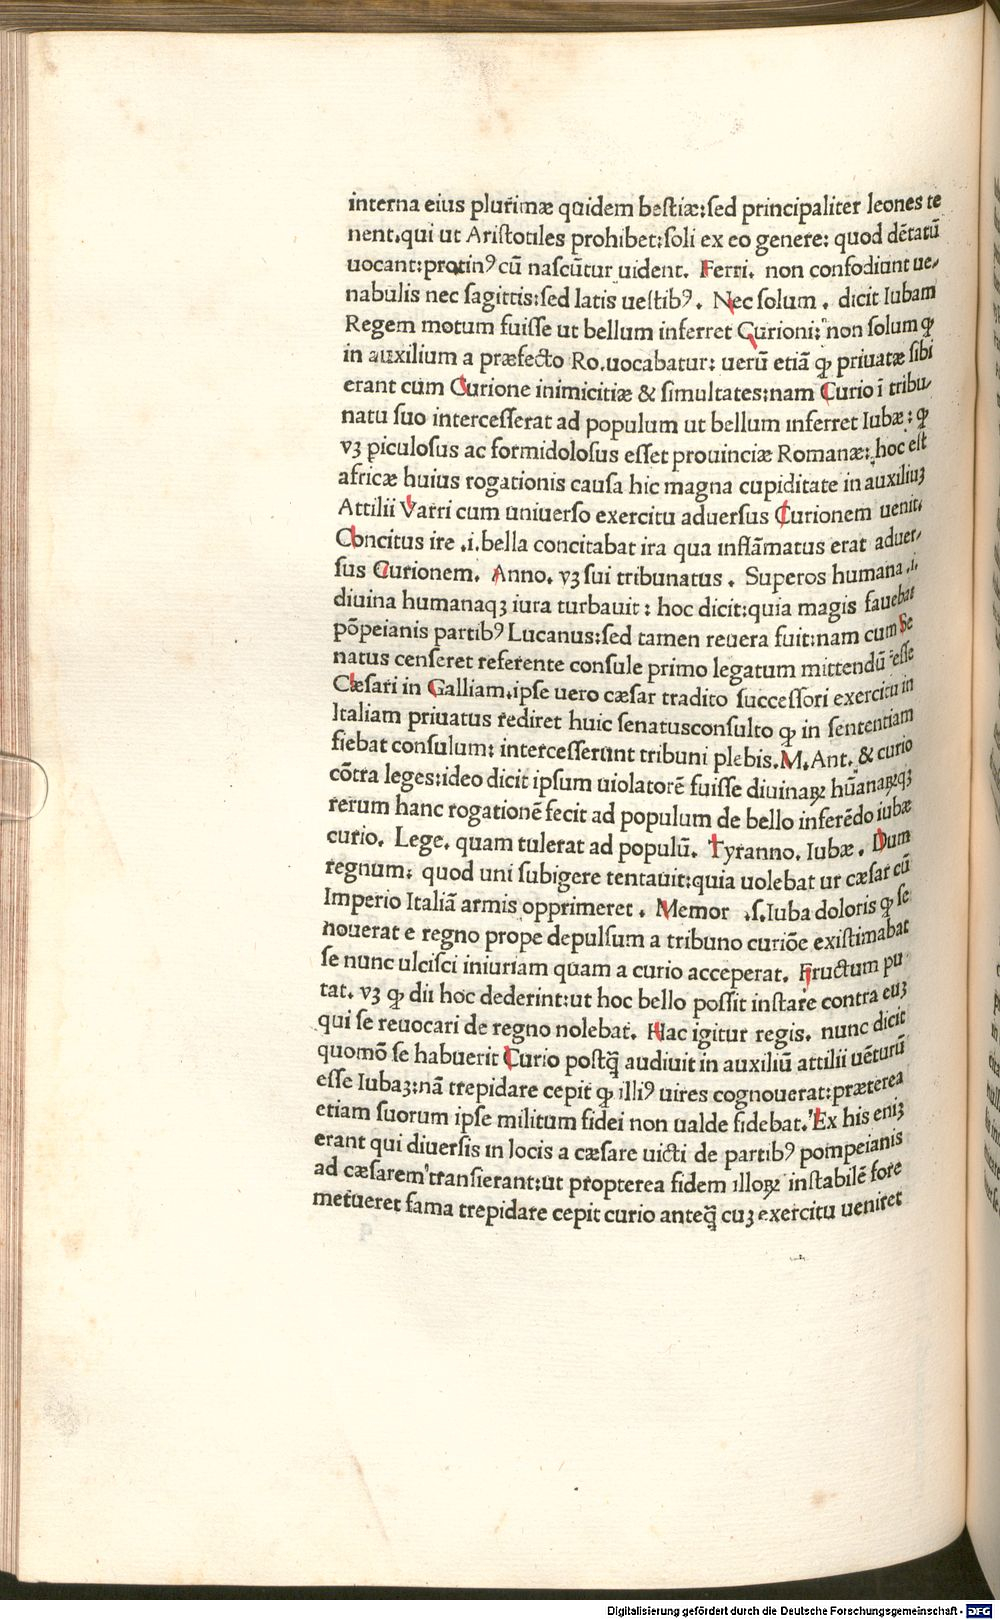 interna eius plurimæ quidem bestiæ:sed principaliter leones te
nent.qui ut Aristotiles prohibet:soli ex eo genere: quod dẽtatũ
uocant:protinꝰ cũ nascũtur uident. Ferri. non confodiunt ue-
nabulis nec sagittis:sed latis uestibꝰ. Nec solum. dicit Iubam
Regem motum fuisse ut bellum inferret Curioni: non solum ꝙ
in auxilium a præfecto Ro.uocabatur: uerũ etiã ꝙ priuatæ sibi
erant cum Curione inimicitiæ & simultates:nam Curio ĩ tribu-
natu suo intercesserat ad populum ut bellum inferret Iubæ: ꝙ
vꝫ ꝑiculosus ac formidolosus esset prouinciæ Romanæ: hoc est
africæ huius rogationis causa hic magna cupiditate in auxiliuꝫ
Attilii Varri cum uniuerso exercitu aduersus Curionem uenit.
Concitus ire .i.bella concitabat ira qua inflãmatus erat aduer-
sus Curionem. Anno. vꝫ sui tribunatus. Superos humana .i.
diuina humanaqꝫ iura turbauit: hoc dicit:quia magis fauebat
põpeianis partibꝰ Lucanus:sed tamen reuera fuit:nam cum Se
natus censeret referente consule primo legatum mittendũ esse
Cæsari in Galliam.ipse uero cæsar tradito successori exercitu in
Italiam priuatus rediret huic senatusconsulto ꝙ in sententiam
fiebat consulum: intercesserunt tribuni plebis.M.Ant. & curio
cõtra leges:ideo dicit ipsum uiolatorẽ fuisse diuinaꝝ hũanaꝝqꝫ
rerum hanc rogationẽ fecit ad populum de bello inferẽdo iubæ
curio. Lege. quam tulerat ad populũ. Tyranno. Iubæ. Dum
regnum: quod uni subigere tentauit:quia uolebat ut cæsar cũ
Imperio Italiã armis opprimeret. Memor .s.Iuba doloris ꝙ se
nouerat e regno prope depulsum a tribuno curiõe existimabat
se nunc ulcisci iniuriam quam a curio acceperat. Fructum pu
tat. vꝫ ꝙ dii hoc dederint:ut hoc bello possit instare contra euꝫ
qui se reuocari de regno nolebat. Hac igitur regis. nunc dicit
quomõ se habuerit Curio postq̃ audiuit in auxiliũ attilii uẽturũ
esse Iubaꝫ:nã trepidare cepit ꝙ illiꝰ uires cognouerat:præterea
etiam suorum ipse militum fidei non ualde fidebat. Ex his eniꝫ
erant qui diuersis in locis a cæsare uicti de partibꝰ pompeianis
ad cæsarem transierant:ut propterea fidem illoꝝ instabilẽ fore
metueret fama trepidare cepit curio anteq̃ cuꝫ exercitu ueniret
Digitalisierung gefördert durch die Deutsche Forschungsgemeinschaft - DFG